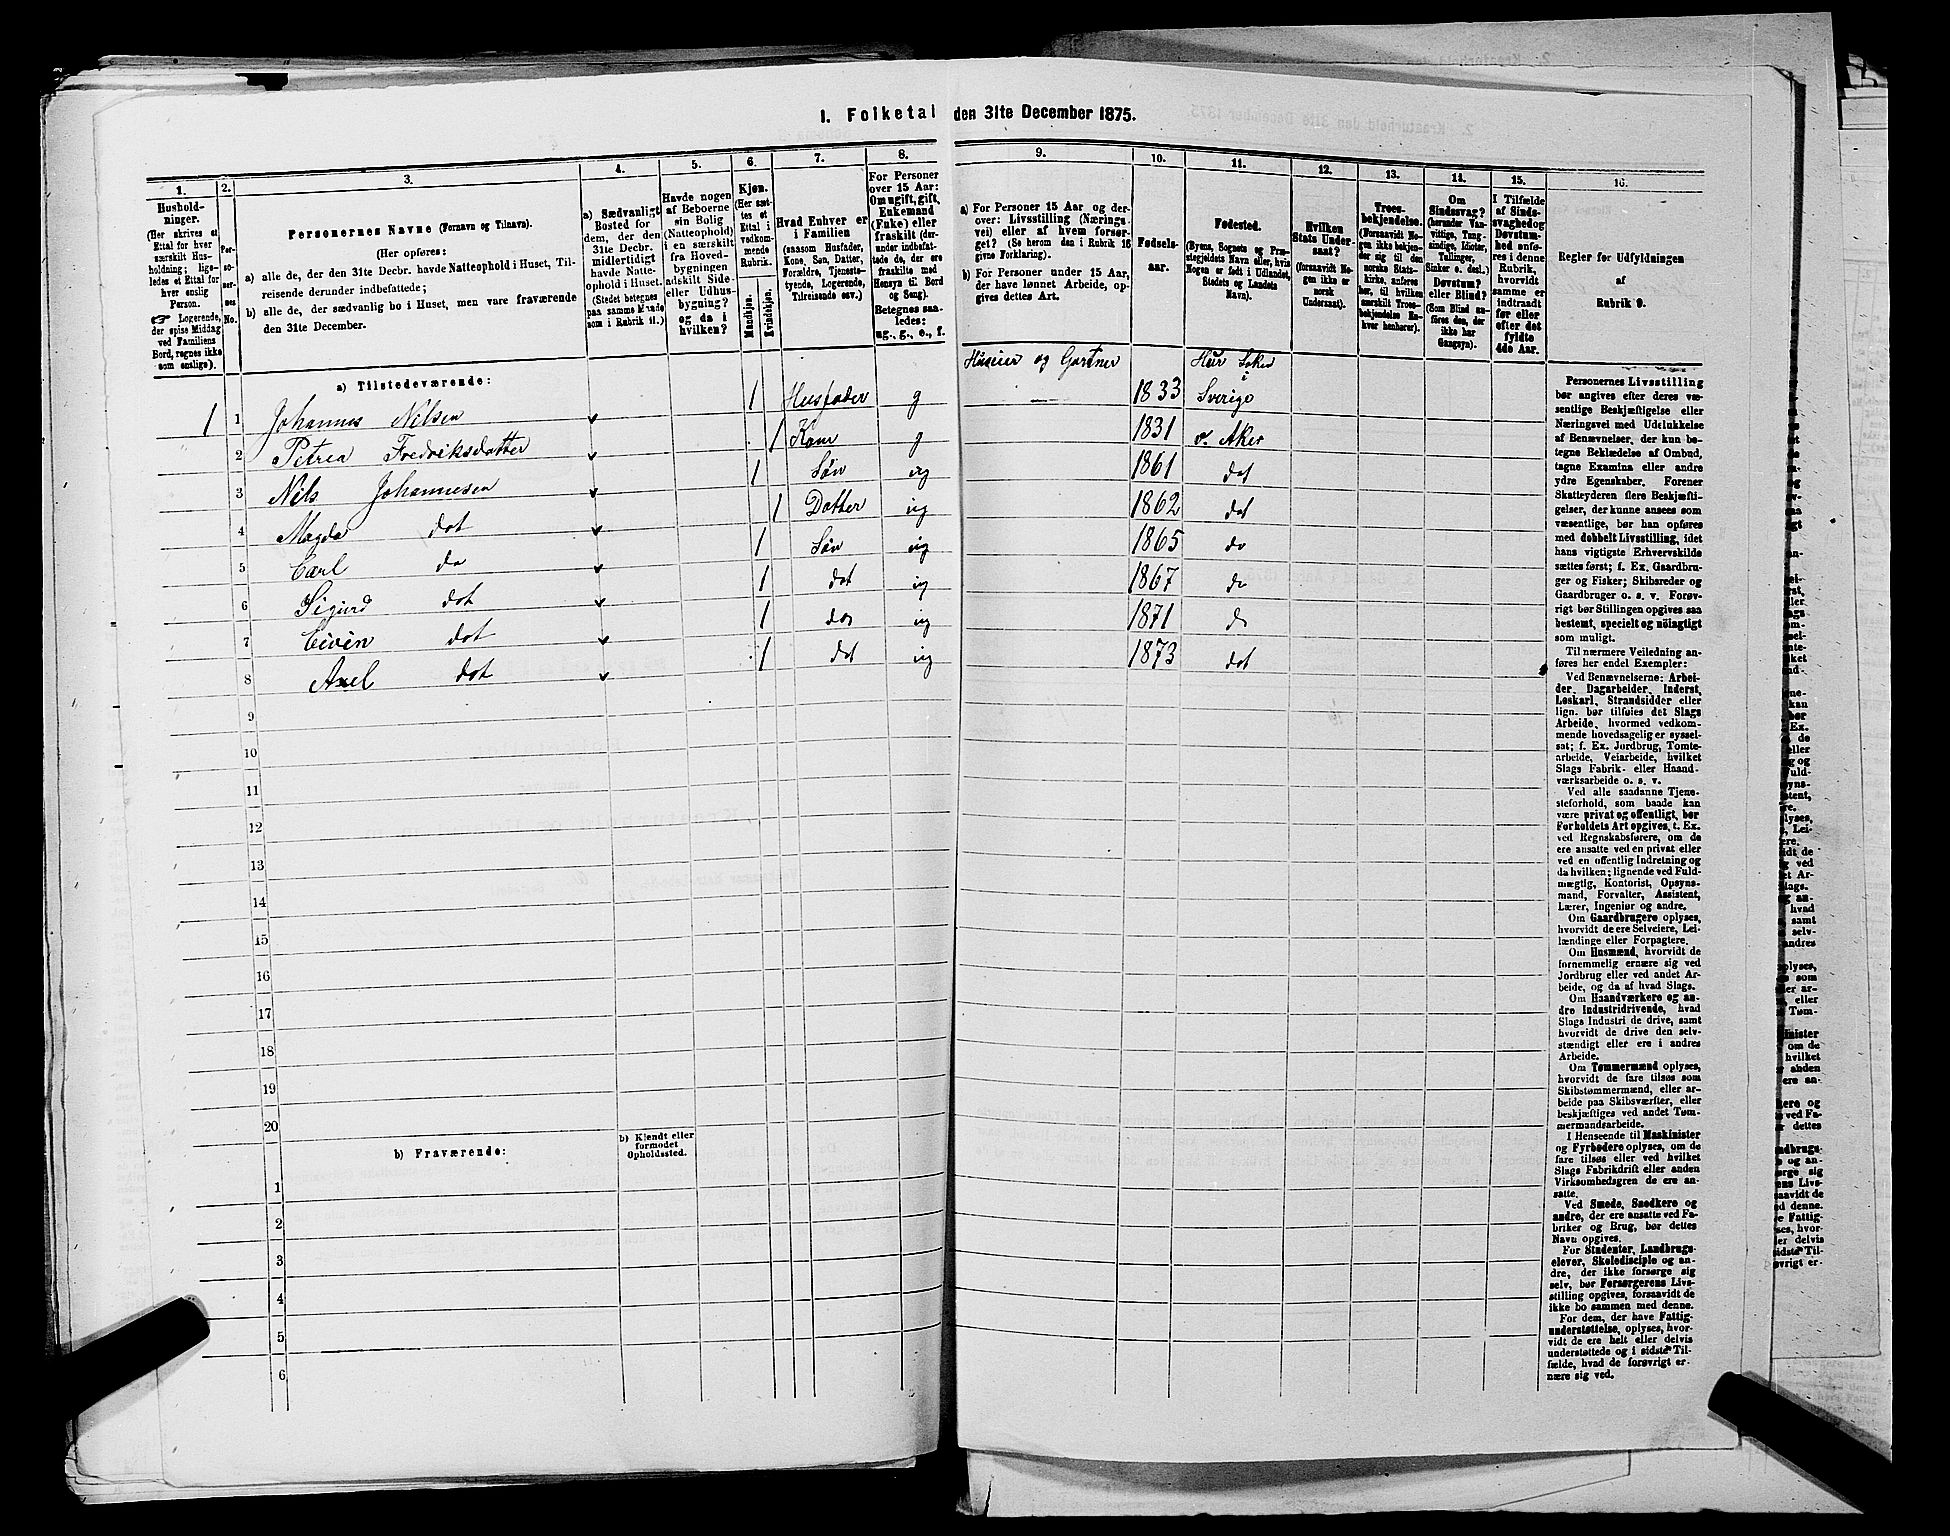 1. Folketal den 31te December 1875.
1.
2.
3.
4.
5.
6.
7.
8.
9.
10.
11.
12.
13.
14.
15.
16.
Hushold-
ninger.
(Her skrives et
Ettal for hver
særskilt Hus-
holdning; lige-
ledes et Ettal for
hver enslig
Person.
☞ Logerende,
der spise Middag
ved Familiens
Bord, regnes ikke
som enslige).
Per-
so-
ner-
nes
No.
Personernes Navne (Fornavn og Tilnavn).
(Her opføres:
a) alle de, der den 31te Decbr. havde Natteophold i Huset, Til-
reisende derunder indbefattede;
b) alle de, der sædvanlig bo i Huset, men vare fraværende
den 31te December.
a) Sædvanligt
Bosted for
dem, der den
31te Decbr.
midlertidigt
havde Natte-
ophold i Huset.
(Stedet betegnes
paa samme Maade
som i Rubrik 11.)
Havde nogen
af Beboerne
sin Bolig
(Natteophold)
i en særskilt
fra Hoved-
bygningen
adskilt Side-
eller Udhus-
bygning?
og da i
hvilken?
Kjøn.
(Her sæt-
tes et
Ettal i
vedkom-
mende
Rubrik.
Mandkjøn.
Kvindekjøn.
Hvad Enhver er
i Familien
(saasom Husfader,
Kone, Søn, Datter,
Forældre, Tjeneste-
tyende, Logerende,
Tilreisende osv.)
For Personer
over 15 Aar:
Om ugift, gift,
Enkemand
(Enke) eller
fraskilt (der-
under indbefat-
tede de, der ere
fraskilte med
Hensyn til Bord
og Seng).
Betegnes saa-
ledes:
ug., g., e., f.
a) For Personer 15 Aar og der-
over: Livsstilling (Nærings-
vei) eller af hvem forsør-
get? (Se herom den i Rubrik 16
givne Forklaring).
b) For Personer under 15 Aar,
der have lønnet Arbeide, op-
gives dettes Art.
Fødsels-
aar.
Fødested.
(Byens, Sognets og Præ-
stegjeldets Navn eller, hvis
Nogen er født i Udlandet,
Stedets og Landets
Navn).
Hvilken
Stats Under-
saat?
(forsaavidt No-
gen ikke er
norsk
Undersaat).
Troes-
bekjendelse.
(Forsaavidt No-
gen ikke bekjen-
der sig til den
norske Stats-
kirke, anføres
her, til hvilken
særskilt Troes-
bekjendelse En-
hver henhører).
Om
Sindssvag?
(herunder Van-
vittige, Tung-
sindige, Idioter,
Tullinger,
Sinker o. desl.)
Døvstum?
eller Blind?
(Som Blind an-
føres den, der
ikke har
Gangsyn).
I Tilfælde
af Sinds-
svaghed og
Døvstum-
hed anfø-
res i denne
Rubrik,
hvorvidt
samme er
indtraadt
før eller
efter det
fyldte
4de Aar.
Regler for Udfyldningen
af
Rubrik 9.
a) Tilstedeværende:
Huseier og Gartner
1 1 Johannes Nilsen 1 Husfader g 1833 i Sverige
2 Petrea Fredriksdatter 1 Kone g 1831 v. Aker
3 Nils Johannesen 1 Søn ug 1861 dot
4 Magda dot 1 Datter ug 1862 dot
5 Carl do 1 Søn ug 1865 do
6 Sigurd dot 1 dot ug 1867 do
7 Eivin dot 1 dot ug 1871 do
8 Axel dot 1 dot ug 1873 dot
9
10
11
12
13
14
15
16
17
18
19
20
b) Fraværende:
b) Kjendt eller
formodet
Opholdssted.
1
2
3
4
5
6
Personernes Livsstilling
bør angives efter deres væ-
sentlige Beskjæftigelse eller
Næringsvei med Udelukkelse
af Benævnelser, der kun be-
tegne Beklædelse af Ombud,
tagne Examina eller andre
ydre Egenskaber. Forener
Skatteyderen flere Beskjæfti-
gelser, der kunne ansees som
væsentlige, bør han opføres
med dobbelt Livsstilling, idet
hans vigtigste Erhvervskilde
sættes først; f. Ex. Gaardbru-
ger og Fisker; Skibsreder og
Gaardbruger o. s. v. Forøv-
rigt bør Stillingen opgives saa
bestemt, specielt og nöiagtigt
som muligt.
Til nærmere Veiledning an-
føres her endel Exempler:
Ved Benævnelserne: Arbei-
der, Dagarbeider, Inderst,
Løskarl, Strandsidder eller
lign. bør tilføies det Slags
Arbeide, hvormed vedkom-
mende hovedsagelig er syssel-
sat; f. Ex. Jordbrug, Tomte-
arbeide, Veiarbeide, hvilket
Slags Fabrik- eller Haand-
værksarbeide o. s. v.
Ved alle saadanne Tjene-
steforhold, som baade kan
være privat og offentligt, bør
Forholdets Art opgives, t. Ex.
ved Regnskabsførere, om de
ere ansatte ved en privat eller
ved en offentlig Indretning og
da hvilken; lignende ved Fuld-
mægtig, Kontorist, Opsyns-
mand, Forvalter, Assistent,
Lærer, Ingeniør og andre.
Om Gaardbrugere oplyses,
hvorvidt de ere Selveiere, Lei-
lændinge eller Forpagtere.
Om Husmænd, hvorvidt de
fornemmelig ernære sig ved
Jordbrug eller ved andet Ar-
beide, og da af hvad Slags.
Om Haandværkere og an-
dre Industridrivende, hvad
Slags Industri de drive, samt
hvorvidt de drive den selv-
stændigt eller ere i andres
Arbeide.
Om Tømmermænd oplyses,
hvorvidt de fare tilsøs som
Skibstømmermænd, eller ar-
beide paa Skibsværfter, eller
beskjæftiges ved andet Tøm-
mermandsarbeide.
I Henseende til Maskinister
og Fyrbødere oplyses, om de
fare tilsøs eller ved hvilket
Slags Fabrikdrift eller anden
Virksomhedsgren de ere an-
satte.
Ved Smede, Snedkere og
andre, der ere ansatte ved Fa-
briker og Brug, bør dettes
Navn opgives.
For Studenter, Landbrugs-
elever, Skoledisciple og an-
dre, der ikke forsørge sig
selv, bør Forsørgerens Livs-
stilling opgives, forsaavidt de
ikke bo sammen med denne.
For dem, der have Fattig-
understøttelse, oplyses, hvor-
vidt de ere helt eller delvis
understøttede og i sidste Til-
fælde, hvad de forøvrigt er-
nære sig ved.